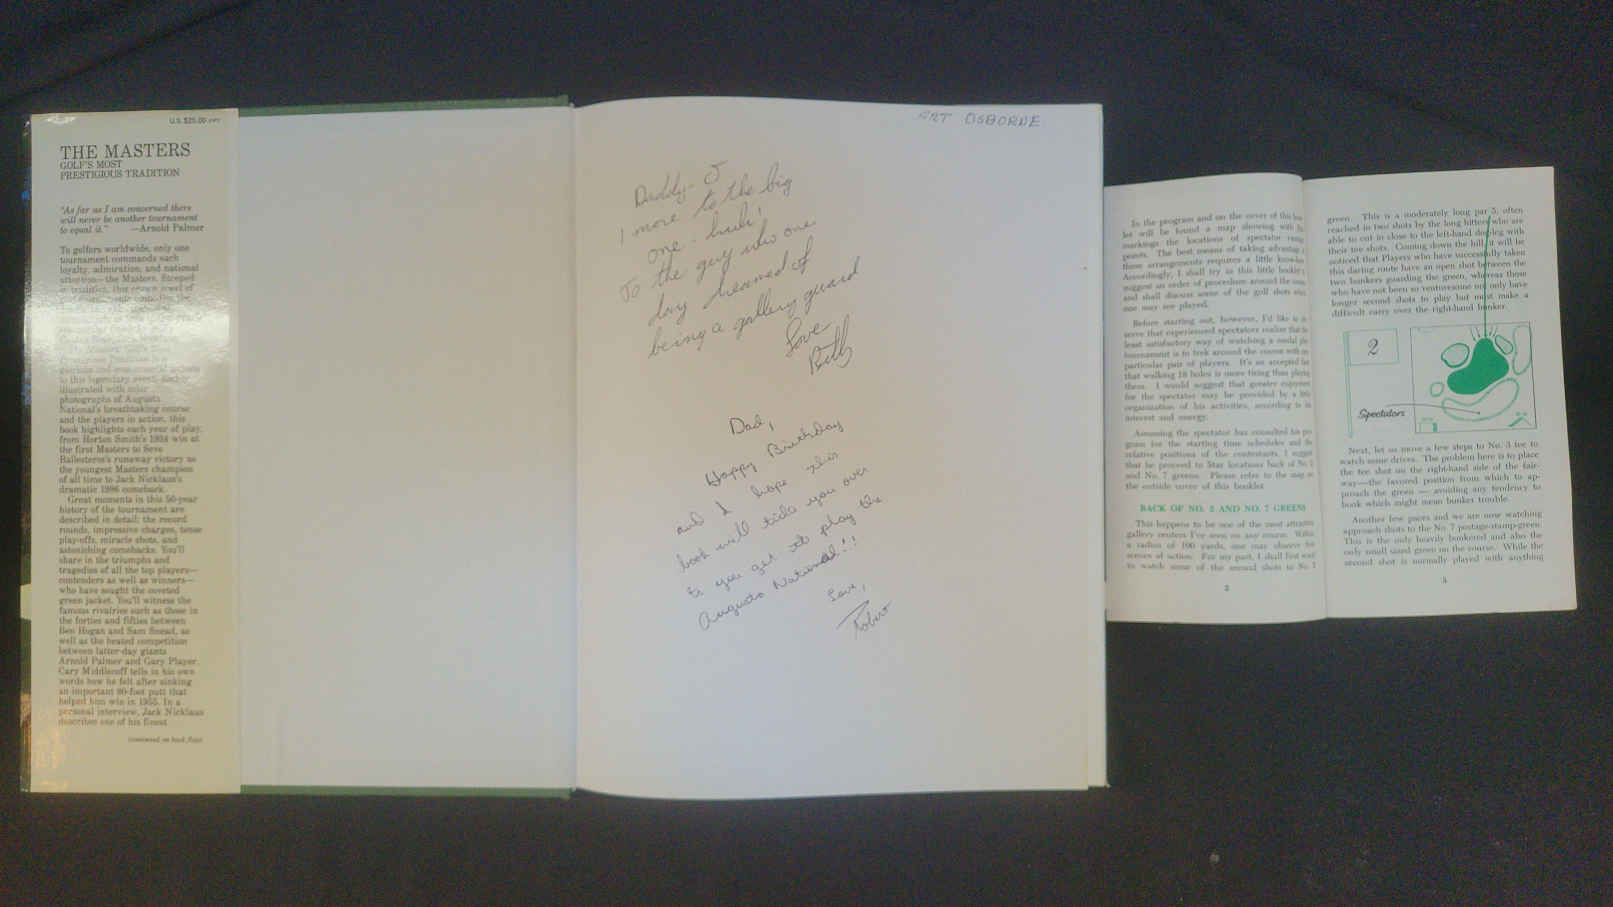 U.S. $25.00
THE MASTERS
GOLF'S MOST
PRESTIGIOUS TRADITION
"As far as I am concerned there
will never be another tournament
to equal it." —Arnold Palmer
To golfers worldwide, only one
tournament commands such
loyalty, admiration, and national
attention—the Masters. Steeped
in tradition, this crown jewel of
to this legendary event. Richly
illustrated with color
photographs of Augusta
National's breathtaking course
and the players in action, this
book highlights each year of play,
from Horton Smith's 1934 win at
the first Masters to Seve
Ballesteros's runaway victory as
the youngest Masters champion
of all time to Jack Nicklaus's
dramatic 1986 comeback.
Great moments in this 50-year
history of the tournament are
described in detail: the record
rounds, impressive charges, tense
play-offs, miracle shots, and
astonishing comebacks. You'll
share in the triumphs and
tragedies of all the top players—
contenders as well as winners—
who have sought the coveted
green jacket. You'll witness the
famous rivalries such as those in
the forties and fifties between
Ben Hogan and Sam Snead, as
well as the heated competition
between latter-day giants
Arnold Palmer and Gary Player.
Cary Middlecoff tells in his own
words how he felt after sinking
an important 80-foot putt that
helped him win in 1955. In a
personal interview, Jack Nicklaus
describes one of his finest
(continued on back flap)
ART OSBORNE
Daddy-O
1 more to the big
one
To the guy who one
day dreamed of
being a gallery guard
Love
Betty
Dad,
Happy Birthday
and I hope this
book will tide you over
til you get to play the
Augusta National!!!
Love,
Robert
In the program and on the cover of this
let will be found a map showing with
markings the locations of spectator
points. The best means of taking advantage
these arrangements requires a little
Accordingly, I shall try in this little
suggest an order of procedure around the
and shall discuss some of the golf shots
one may see played.
Before starting out, however, I'd like to
serve that experienced spectators realize that
least satisfactory way of watching a medal
tournament is to trek around the course with
particular pair of players. It's an accepted
that walking 18 holes is more tiring than playing
them. I would suggest that greater
for the spectator may be provided by a
organization of his activities, according to
interest and energy.
Assuming the spectator has consulted his
gram for the starting time schedules and
relative positions of the contestants, I suggest
that he proceed to Star locations back of No. 2
and No. 7 greens. Please refer to the map on
the outside cover of this booklet.
BACK OF NO. 2 AND NO. 7 GREENS
This happens to be one of the most
gallery centers I've seen on any course. Within
a radius of 100 yards, one may observe
scenes of action. For my part, I shall first
to watch some of the second shots to No. 2
2
green. This is a moderately long par 5, often
reached in two shots by the long hitters who are
able to cut in close to the left-hand dogleg with
their tee shots. Coming down the hill, it will be
noticed that Players who have successfully taken
this daring route have an open shot between the
two bunkers guarding the green, whereas those
who have not been so venturesome not only have
longer second shots to play but must make a
difficult carry over the right-hand bunker.
2
Spectators
Next, let us move a few steps to No. 3 tee to
watch some drives. The problem here is to place
the tee shot on the right-hand side of the fair-
way—the favored position from which to ap-
proach the green — avoiding any tendency to
hook which might mean bunker trouble.
Another few paces and we are now watching
approach shots to the No. 7 postage-stamp-green.
This is the only heavily bunkered and also the
only small sized green on the course. While the
second shot is normally played with anything
3